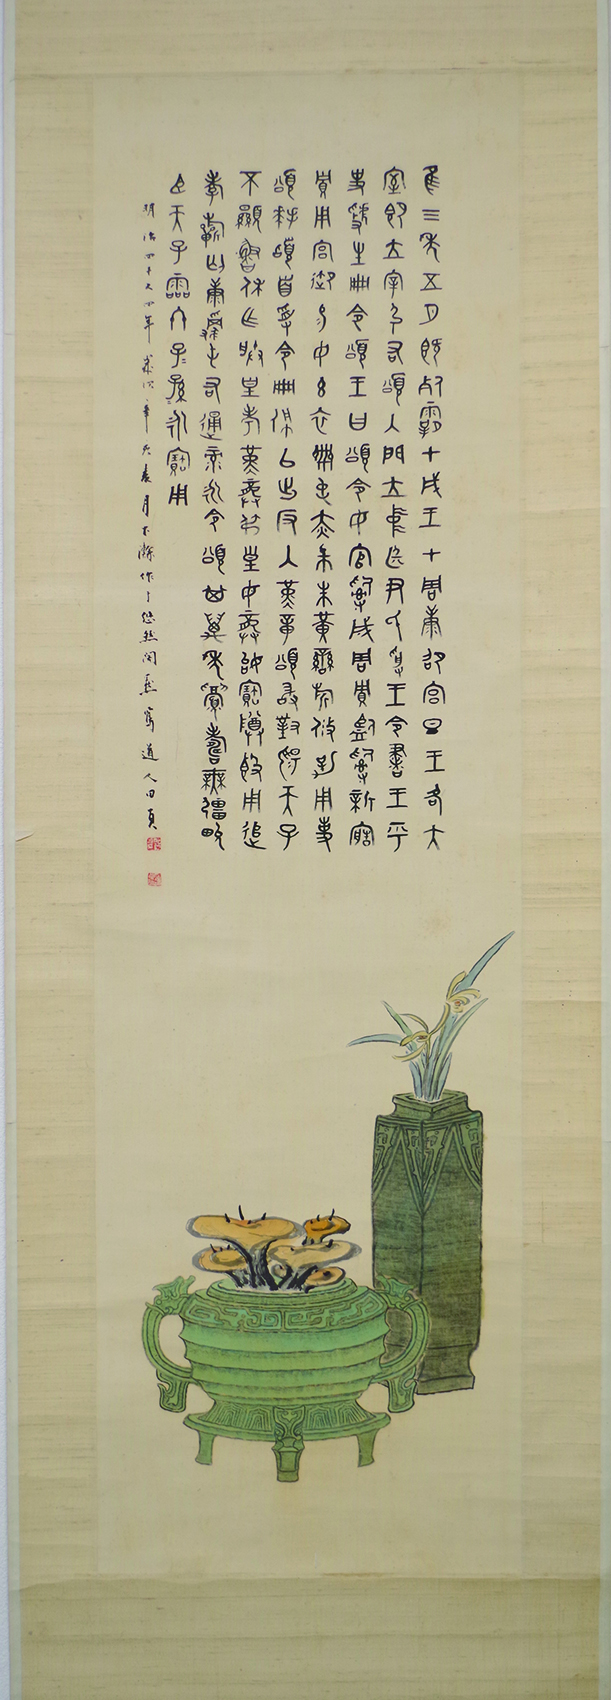 隹三年五月既死霸甲戌王才周康卲宮旦王各大
室即立宰弘右頌入門立中廷尹氏受王令書王乎
史虢生冊令頌王曰頌令女官𤔲成周賈監𤔲新造
賈用宮御易女玄衣黹屯赤巿朱黃䜌旂攸勒用事
頌拜𩒨首受令冊佩以出反入堇章頌敢對揚天子
不顯魯休乍朕皇考龏弔皇母龏始寶尊𣪘用追
孝祈匄康虔屯右通彔永令頌其萬年眉壽無疆畯
臣天子霝冬子孫永寶用
明治四十又四年歲次辛亥春月下澣作于悠然閑処道人